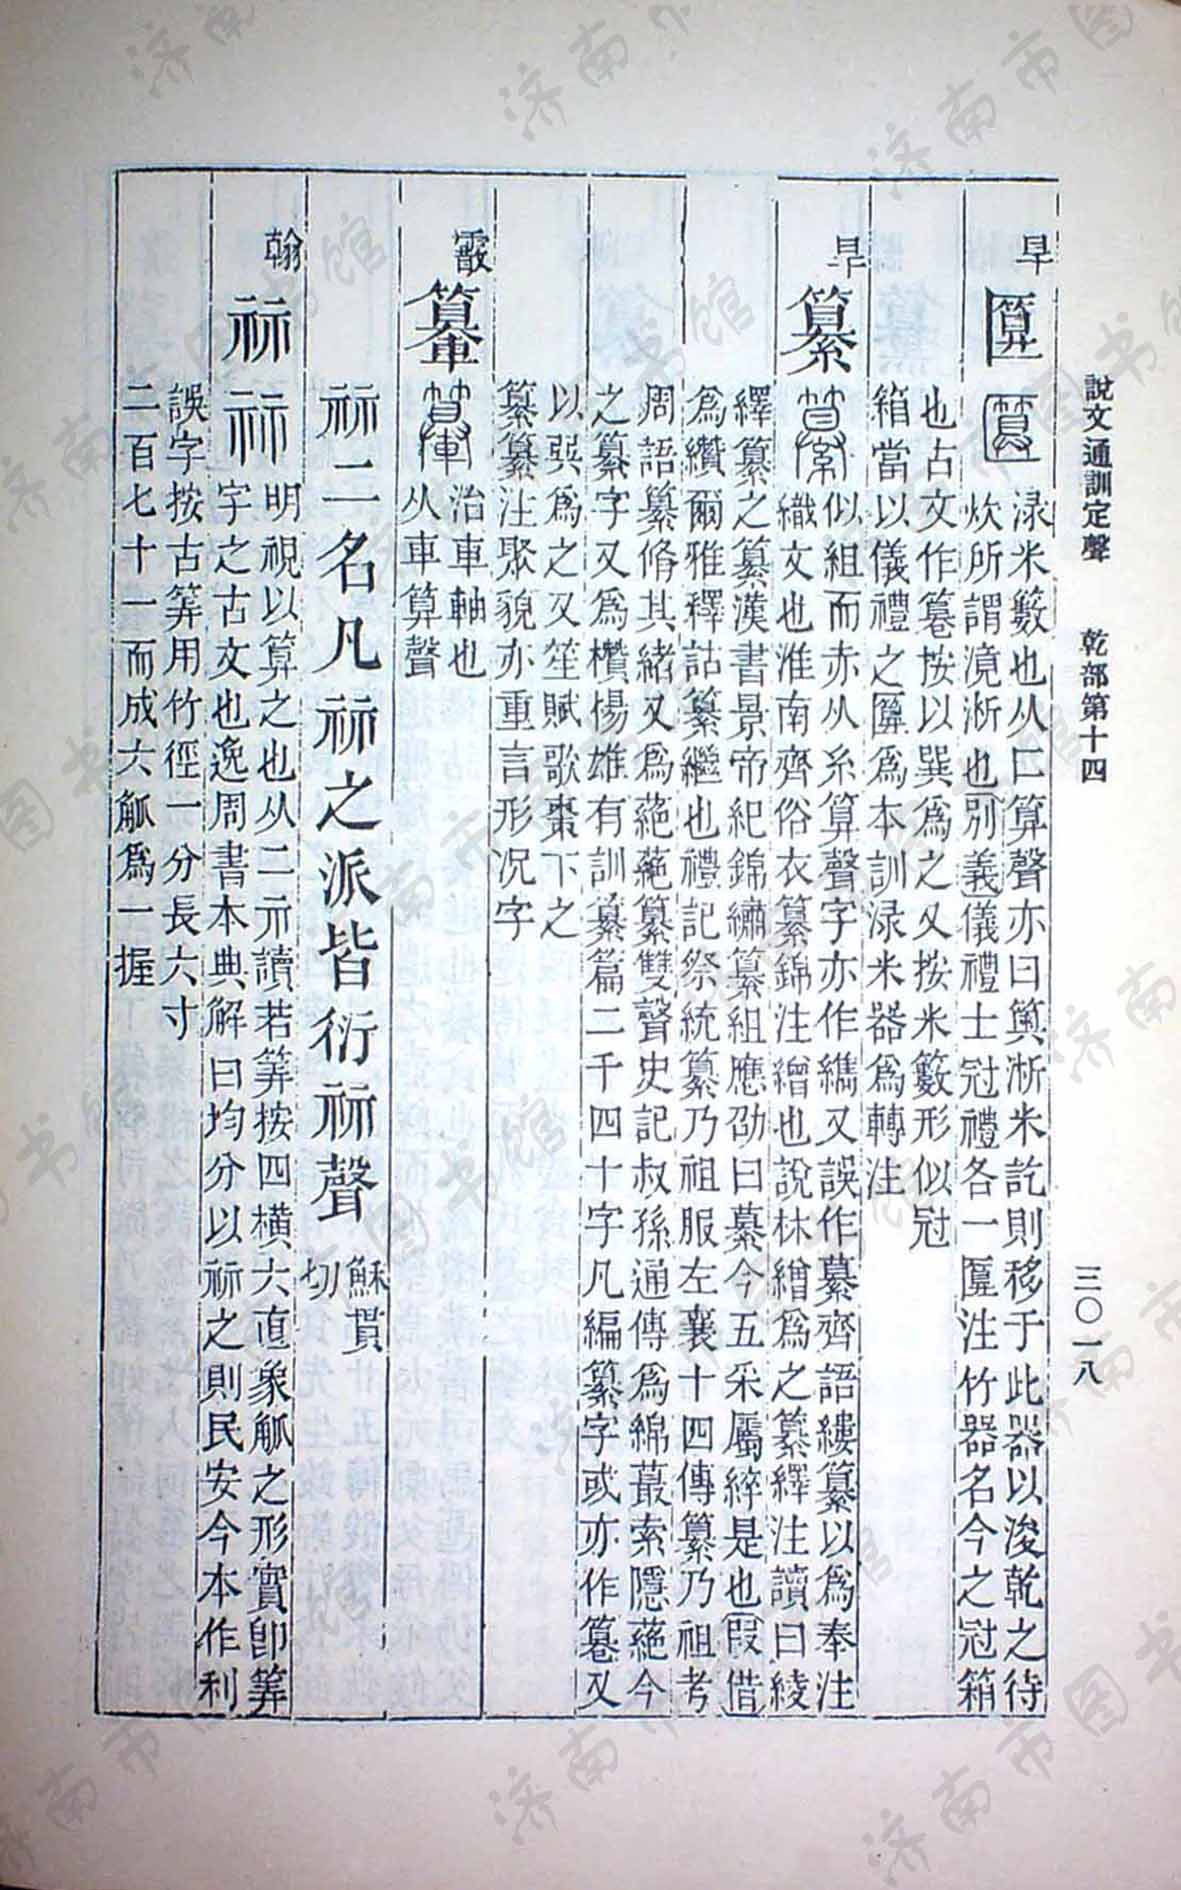 說文通訓定聲 乾部第十四 三〇一八
旱 匴 淥米籔也从匚算聲亦曰䉛淅米訖則移于此器以浚乾之待
炊所謂滰淅也別義儀禮士冠禮各一匴注竹器名今之冠箱
也古文作篹按以巽爲之又按米籔形似冠
箱當以儀禮之匴爲本訓淥米器爲轉注
旱 纂 似組而赤从糸算聲字亦作繓又誤作纂齊語縷纂以爲奉注
織文也淮南齊俗衣纂錦注繒也說林繒爲之纂繹注讀曰綾
繹纂之纂漢書景帝紀錦繡纂組應劭曰纂今五采屬綷是也假借
爲纘爾雅釋詁纂繼也禮記祭統纂乃祖服左襄十四傳纂乃祖考
周語纂脩其緒又爲蕝蕝纂雙聲史記叔孫通傳爲綿蕞索隱蕝今
之纂字又爲欑揚雄有訓纂篇二千四十字凡編纂字或亦作篹又
以㢲爲之又笙賦歌棗下之
纂纂注聚貌亦重言形況字
霰 𨏉 治車軸也
从車算聲
祘二名凡祘之派皆衍祘聲 穌貫
切
翰 祘 明視以算之也从二示讀若筭按四橫六直象觚之形實卽筭
字之古文也逸周書本典解曰均分以祘之則民安今本作利
誤字按古筭用竹徑一分長六寸
二百七十一而成六觚爲一握